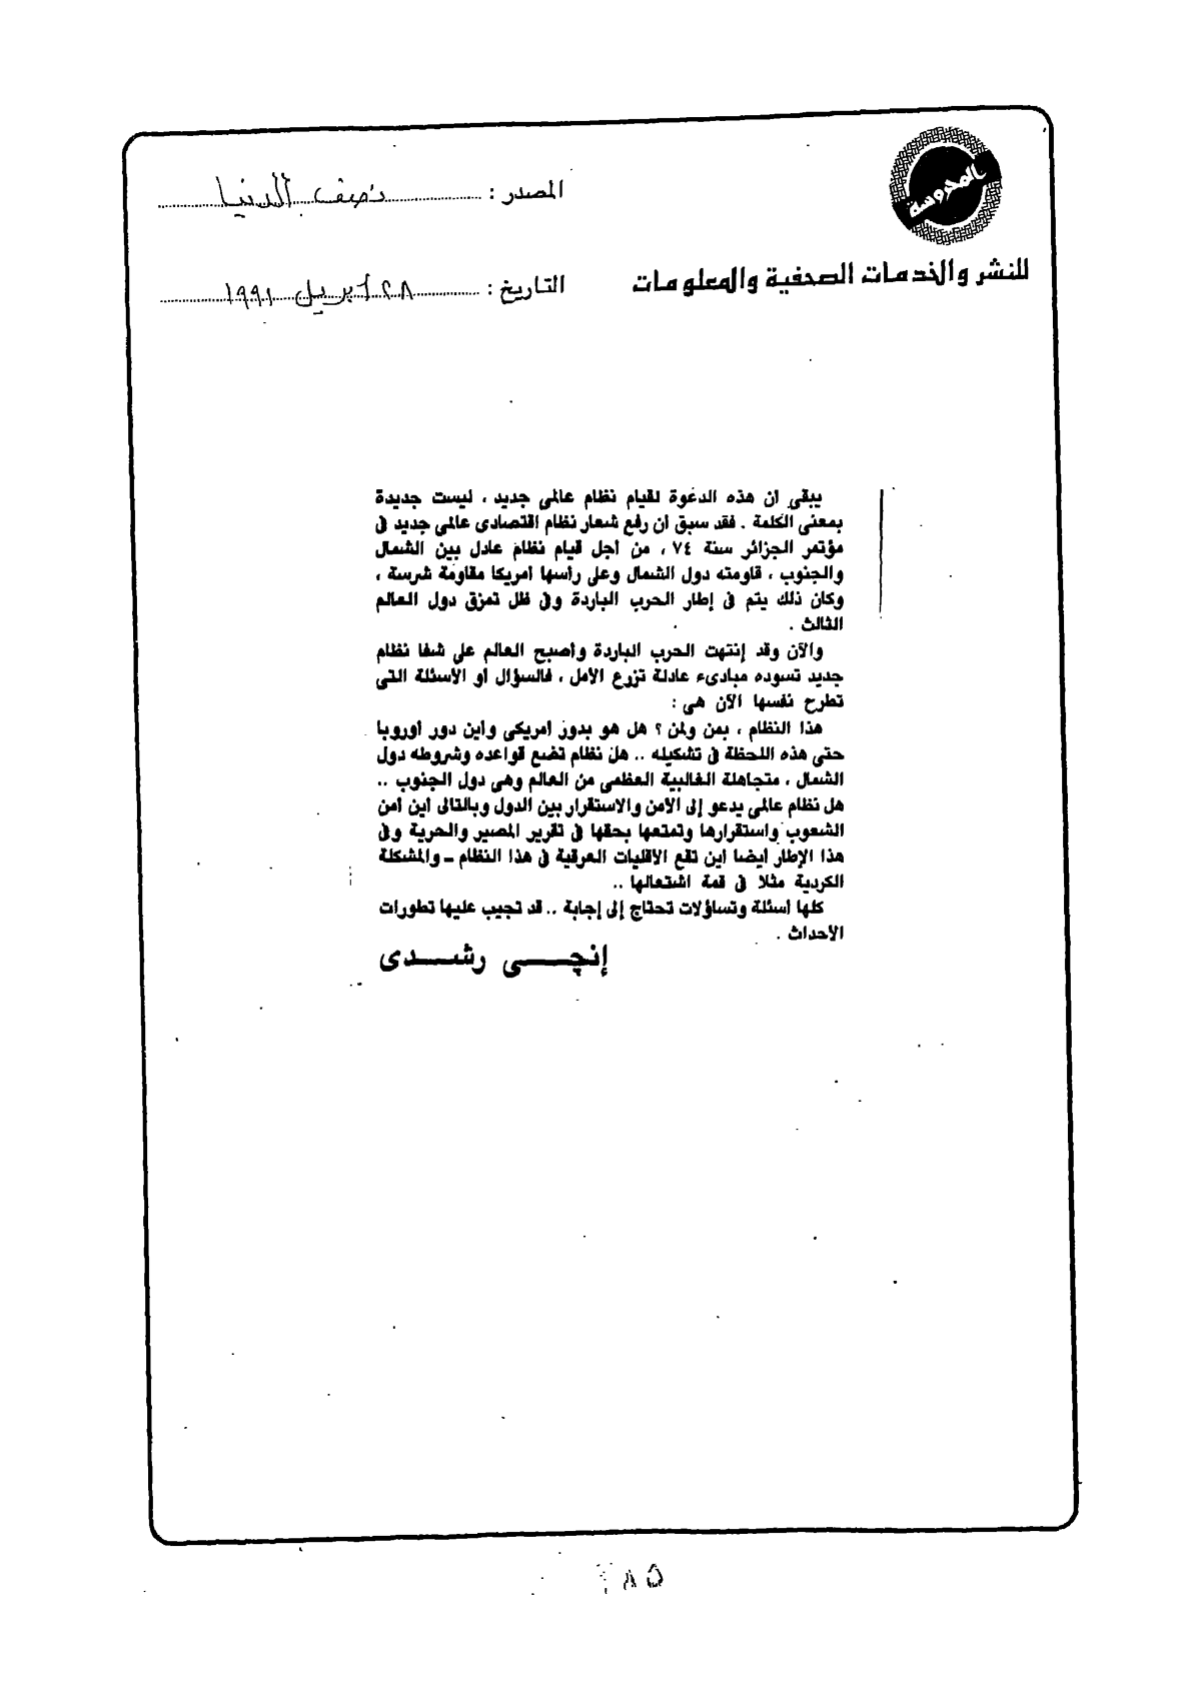 المحروسة
للنشر والخدمات الصحفية والمعلومات
المصدر : نصف الدنيا
التاريخ : ٢٨ أبريل ١٩٩١
يبقى ان هذه الدعوة لقيام نظام عالمى جديد ، ليست جديدة
بمعنى الكلمة . فقد سبق ان رفع شعار نظام اقتصادى عالمى جديد فى
مؤتمر الجزائر سنة ٧٤ ، من اجل قيام نظام عادل بين الشمال
والجنوب ، قاومته دول الشمال وعلى رأسها امريكا مقاومة شرسة ،
وكان ذلك يتم فى إطار الحرب الباردة وفى ظل تمزق دول العالم
الثالث .
والآن وقد إنتهت الحرب الباردة واصبح العالم على شفا نظام
جديد تسوده مبادىء عادلة تزرع الأمل ، فالسؤال أو الأسئلة التى
تطرح نفسها الآن هى :
هذا النظام ، بمن ولمن ؟ هل هو بدور امريكى واين دور اوروبا
حتى هذه اللحظة فى تشكيله .. هل نظام تضع قواعده وشروطه دول
الشمال ، متجاهلة الغالبية العظمى من العالم وهى دول الجنوب ..
هل نظام عالمى يدعو إلى الأمن والاستقرار بين الدول وبالتالى اين امن
الشعوب واستقرارها وتمتعها بحقها فى تقرير المصير والحرية وفى
هذا الإطار ايضا اين تقع الاقليات العرقية فى هذا النظام ـ والمشكلة
الكردية مثلا فى قمة اشتعالها ..
كلها اسئلة وتساؤلات تحتاج إلى إجابة .. قد تجيب عليها تطورات
الأحداث .
إنچـــى رشـــدى